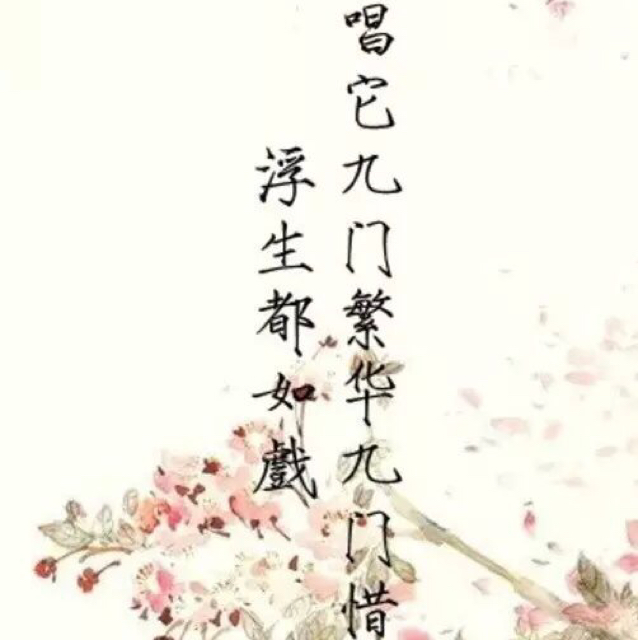 唱它九门繁华九门惜
浮生都如戲